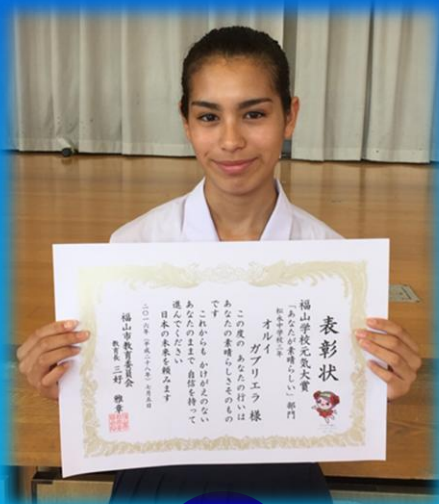 表彰状
福山学校元気大賞
「あなたが素晴らしい」部門
松永中学校二年
オルイ
ガブリエラ 様
この度の あなたの行いは
あなたの素晴らしさそのもの
です
これからも かけがえのない
あなたのままで 自信を持って
進んでください
日本の未来を頼みます
二〇一六年(平成二十八年)七月五日
福山市教育委員会
教育長 三好 雅章